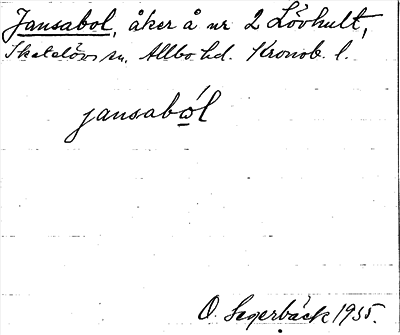 Jansabol, åker å nr 2 Lövhult,
Skatelövs sn. Allbo hd. Kronob. l.
jansaból
O. Segerbäck 1935.